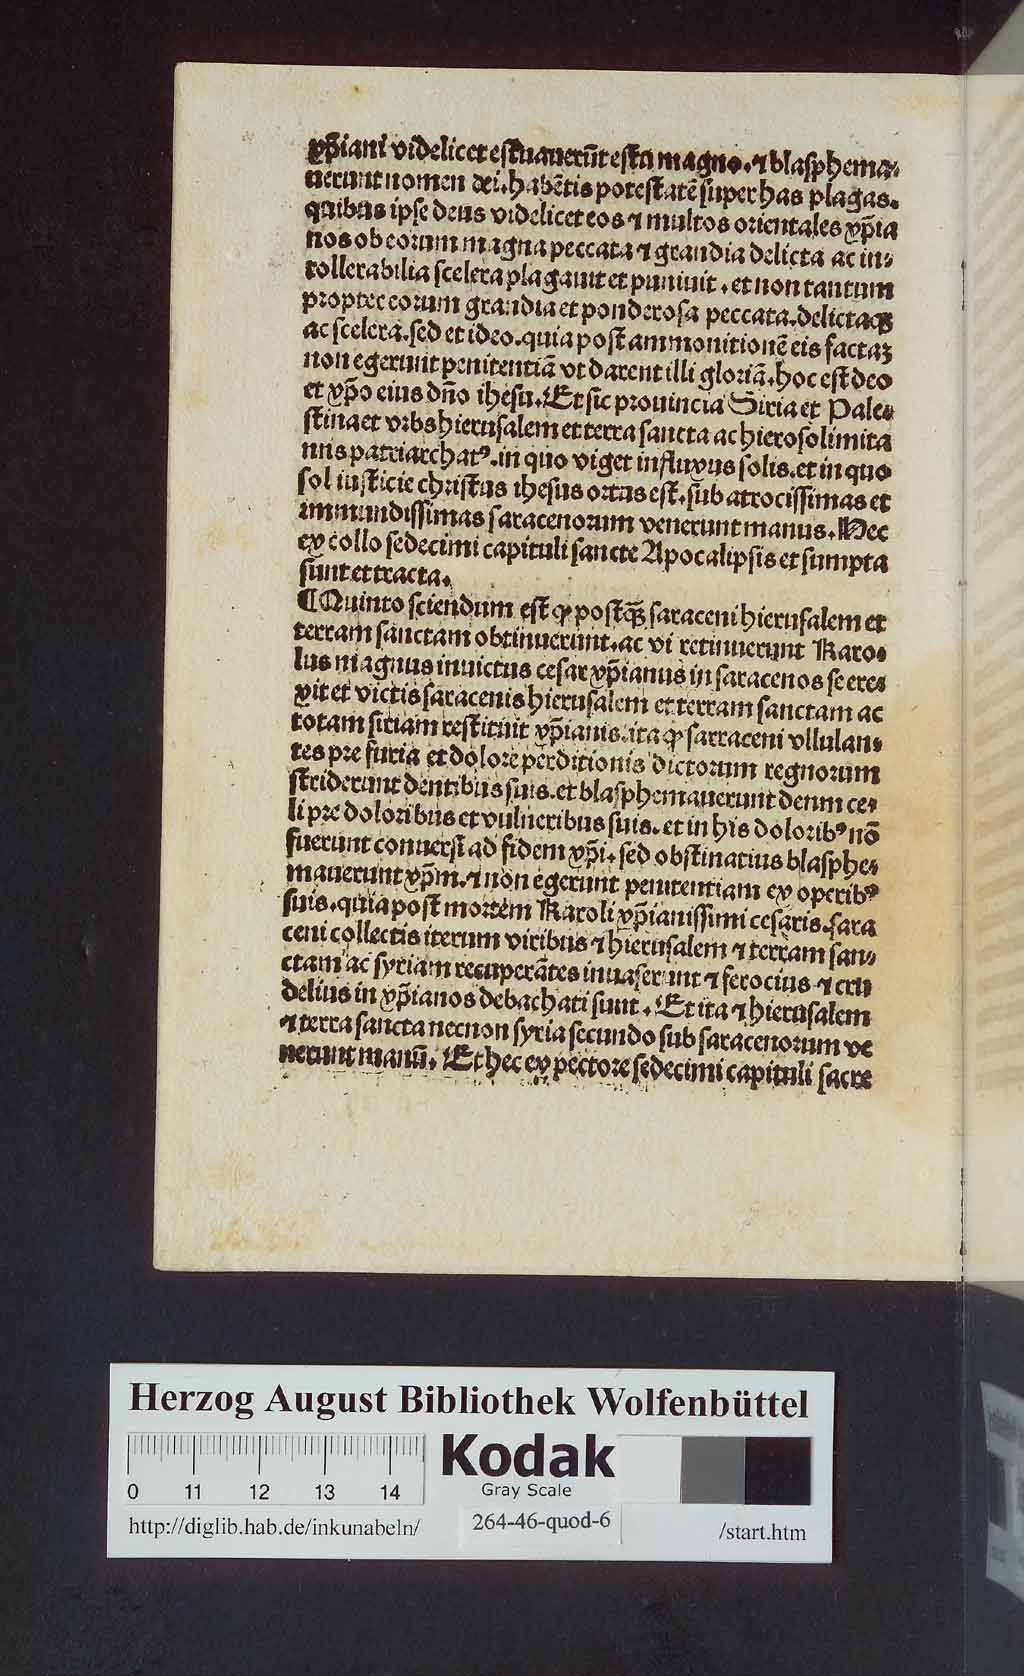 xp̄iani videlicet estuauerūt estu magno. ⁊ blasphema⸗
uerunt nomen dei. habētis potestatē super has plagas.
quibus ipse deus videlicet eos ⁊ multos orientales xp̄ia
nos ob eorum magna peccata ⁊ grandia delicta ac in⸗
tollerabilia scelera plagauit et puniuit. et non tantum
propter eorum grandia et ponderosa peccata. delictaqꝫ
ac scelera. sed et ideo. quia post ammonitionē eis factaꝫ
non egerunt penitentiā vt darent illi gloriā. hoc est deo
et xp̄o eius dn̄o ihesu. Et sic prouincia Siria et Pale⸗
stina et vrbs hierusalem et terra sancta ac hierosolimita
nus patriarchatꝰ. in quo viget influxus solis. et in quo
sol iusticie christus ihesus ortus est. sub atrocissimas et
immundissimas saracenorum venerunt manus. Hec
ex collo sedecimi capituli sancte Apocalipsis et sumpta
sunt et tracta.
¶ Quinto sciendum est ꝙ postq̄ꝫ saraceni hierusalem et
terram sanctam obtinuerunt. ac vi retinuerunt Karo⸗
lus magnus inuictus cesar xp̄ianus in saracenos se ere⸗
xit et victis saracenis hierusalem et terram sanctam ac
totam siriam restituit xp̄ianis. ita ꝙ sarraceni vllulan⸗
tes pre furia et dolore perditionis dictorum regnorum
striderunt dentibus suis. et blasphemauerunt deum ce⸗
li pre doloribus et vulneribus suis. et in his doloribꝰ nō
fuerunt conuersi ad fidem xp̄i. sed obstinatius blasphe⸗
mauerunt xp̄m. ⁊ non egerunt penitentiam ex operibꝰ
suis. quia post mortem Karoli xp̄ianissimi cesaris. sara
ceni collectis iterum viribus ⁊ hierusalem ⁊ terram san⸗
ctam ac syriam recuperātes inuaserunt ⁊ ferocius ⁊ cru
delius in xp̄ianos debachati sunt. Et ita ⁊ hierusalem
⁊ terra sancta necnon syria secundo sub saracenorum ve
nerunt manū. Et hec ex pectore sedecimi capituli sacre
Herzog August Bibliothek Wolfenbüttel
Kodak
Gray Scale
0 11 12 13 14
http://diglib.hab.de/inkunabeln/
264-46-quod-6
/start.htm